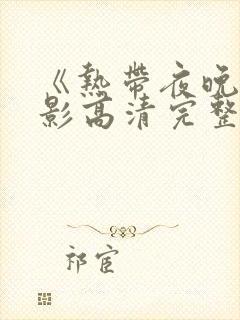 《热带夜晚
影高清完整
祁宦